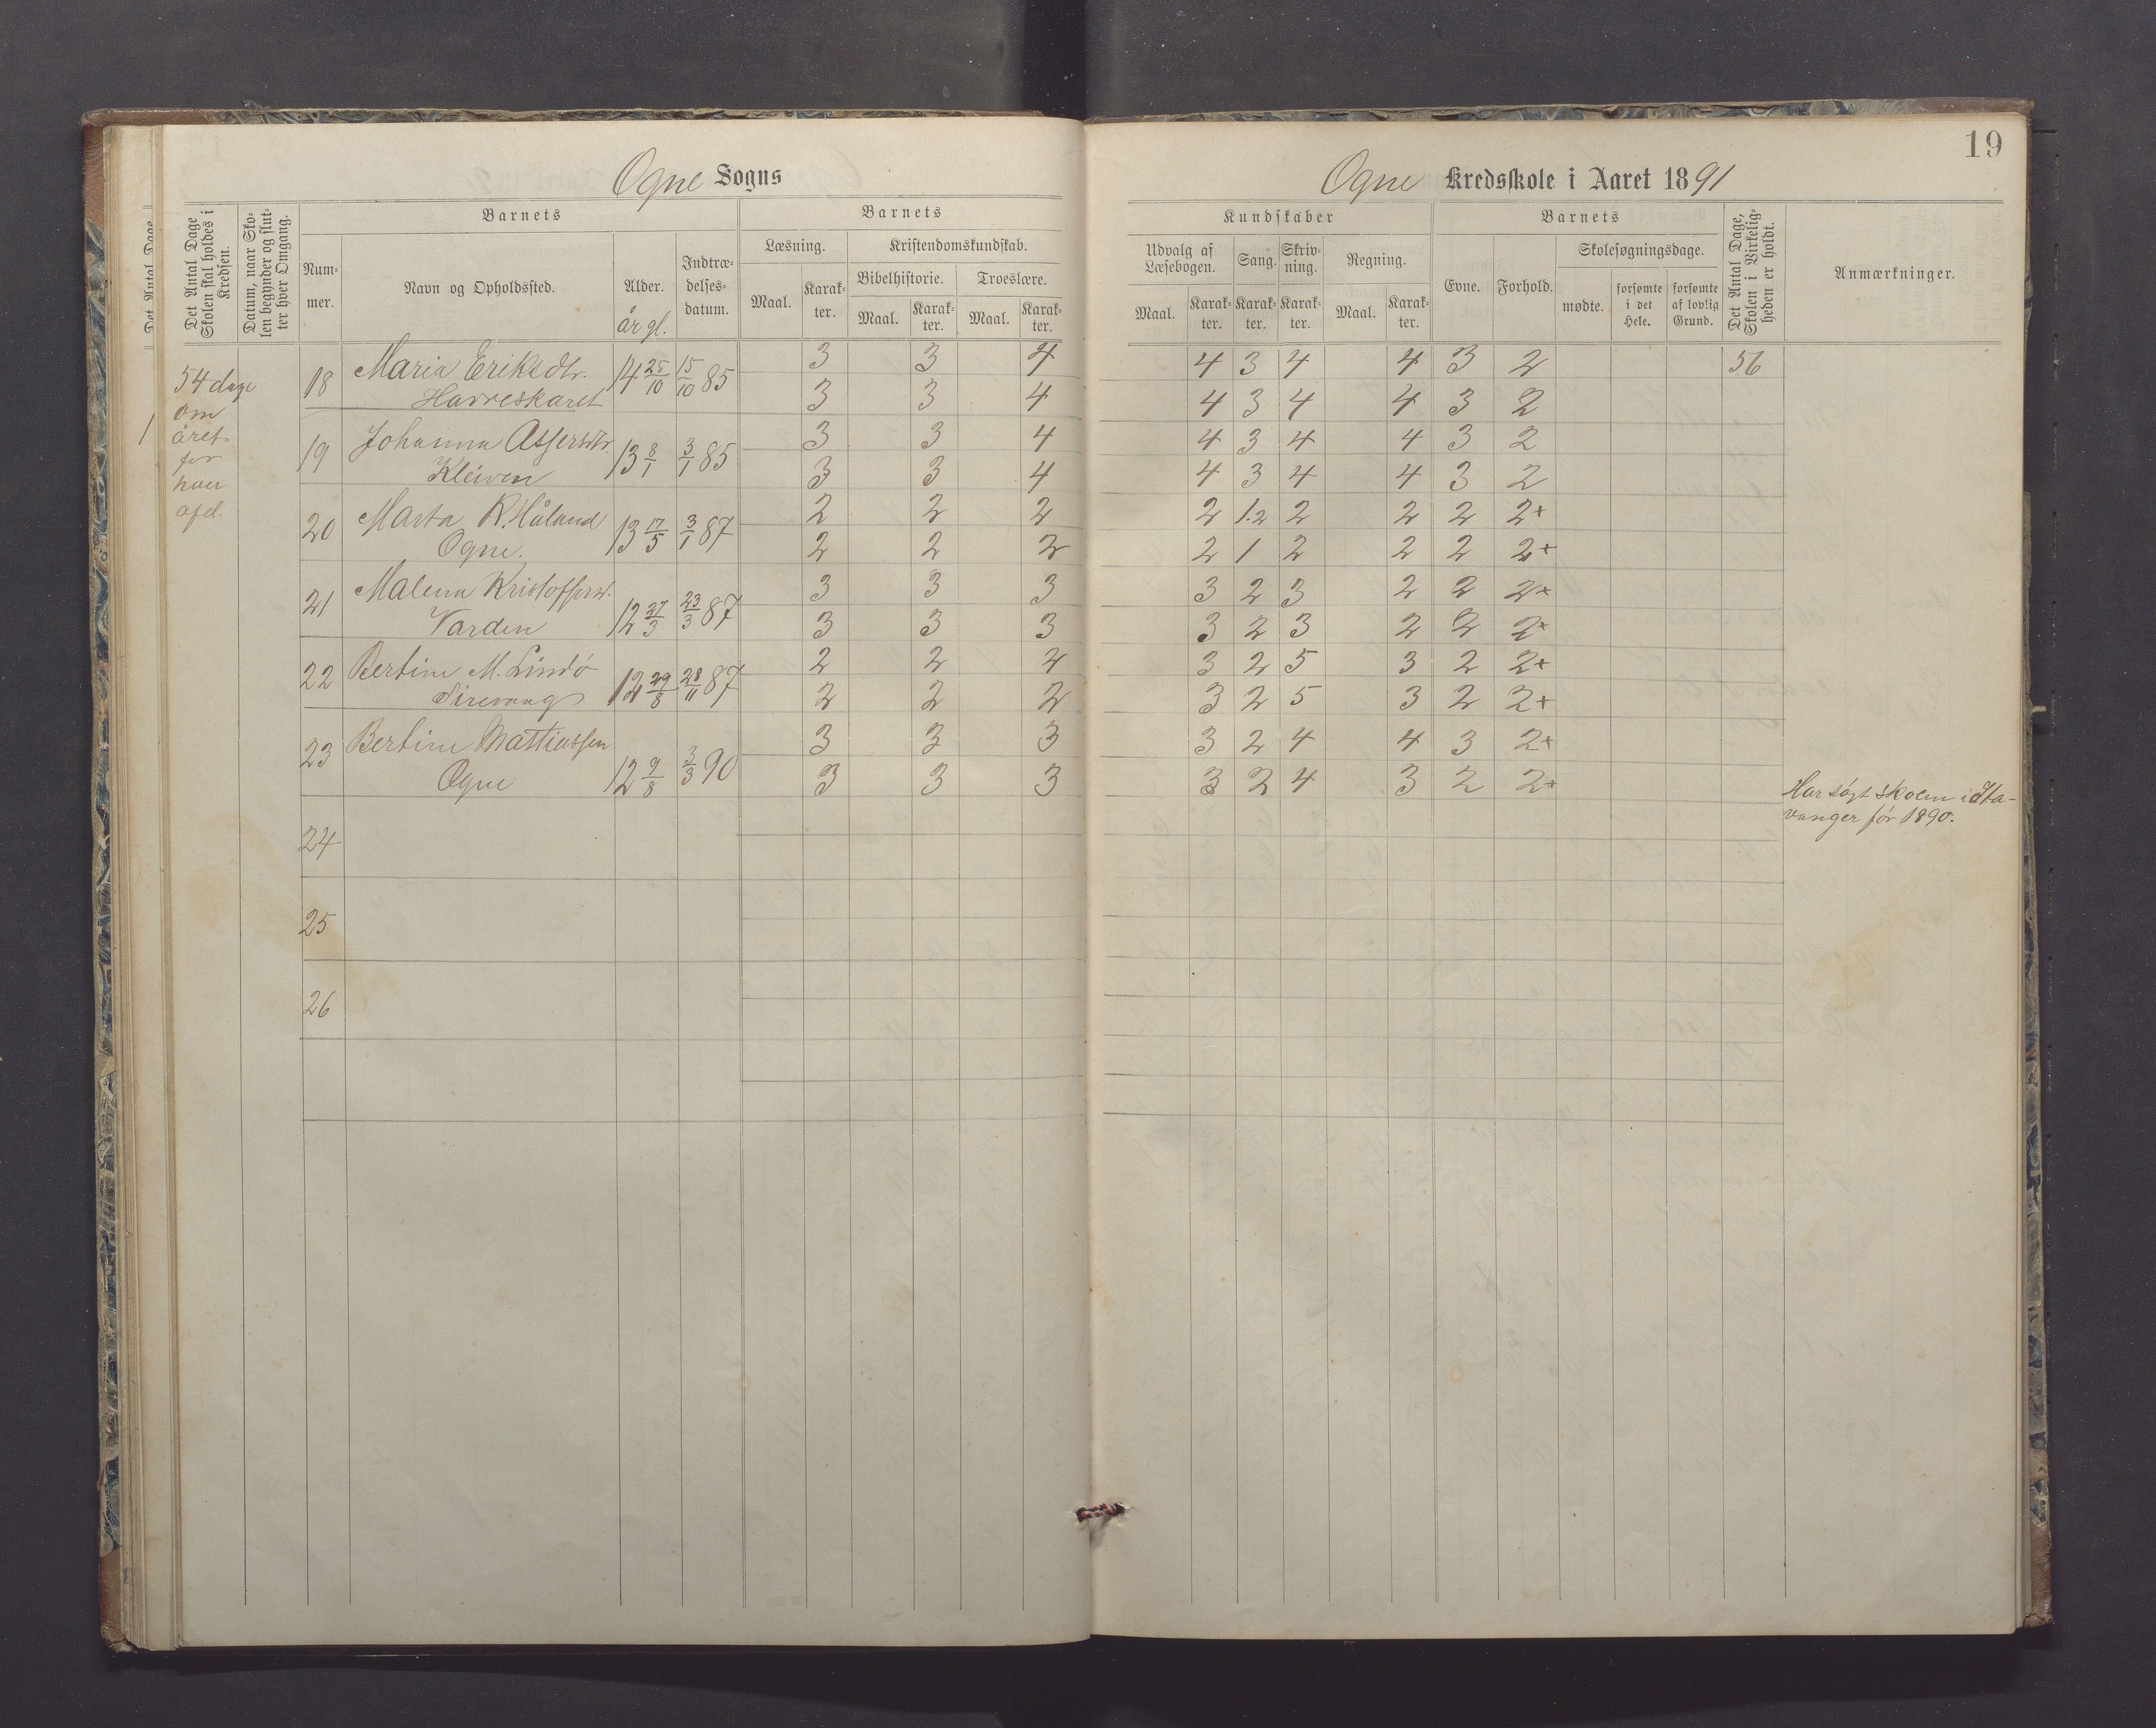 19
Ogne Sogns
Ogne Kredsskole i Aaret 1891
Det Antal Dage
Det Antal Dage
Skolen skal holdes i
Kredsen.
Datum, naar Sko-
len begynder og slut-
ter hver Omgang.
Barnets
Num-
mer.
Navn og Opholdssted.
Alder.
år gl.
Indtræ-
delses-
datum.
Barnets
Læsning.
Maal.
Karak-
ter.
Kristendomskundskab.
Bibelhistorie.
Maal.
Karak-
ter.
Troeslære.
Maal.
Karak-
ter.
Kundskaber
Udvalg af
Læsebogen.
Maal.
Karak-
ter.
Sang.
Karak-
ter.
Skriv-
ning.
Karak-
ter.
Regning.
Maal.
Karak-
ter.
Barnets
Evne.
Forhold.
Skolesøgningsdage.
mødte.
forsømte
i det
Hele.
forsømte
af lovlig
Grund.
Det Antal Dage,
Skolen i Virkelig-
heden er holdt.
Anmærkninger.
54 dage
om
året
for
hver
afd.
18 Maria Eriksdtr. 14 25/10 15/10 85 3 3 4 4 3 4 4 3 2 56
Havreskaret 3 3 4 4 3 4 4 3 2
19 Johanna Assersdtr. 13 8/1 3/1 85 3 3 4 4 3 4 4 3 2
Kleiven 3 3 4 4 3 4 4 3 2
20 Marta R. Håland 13 17/5 3/1 87 2 2 2 2 1.2 2 2 2 2+
Ogne. 2 2 2 2 1 2 2 2 2+
21 Malena Kristoffersd. 12 27/3 23/3 87 3 3 3 3 2 3 2 2 2+
Varden 3 3 3 3 2 3 2 2 2+
22 Bertine M. Lindø 12 29/8 28/11 87 2 2 2 3 2 5 3 2 2+
Sirevaag 2 2 2 3 2 5 3 2 2+
23 Bertine Mattiassen 12 9/8 3/3 90 3 3 3 3 2 4 4 3 2+
Ogne 3 3 3 3 2 4 3 2 2+
Har søgt skolen i Sta-
vanger før 1890.
24
25
26